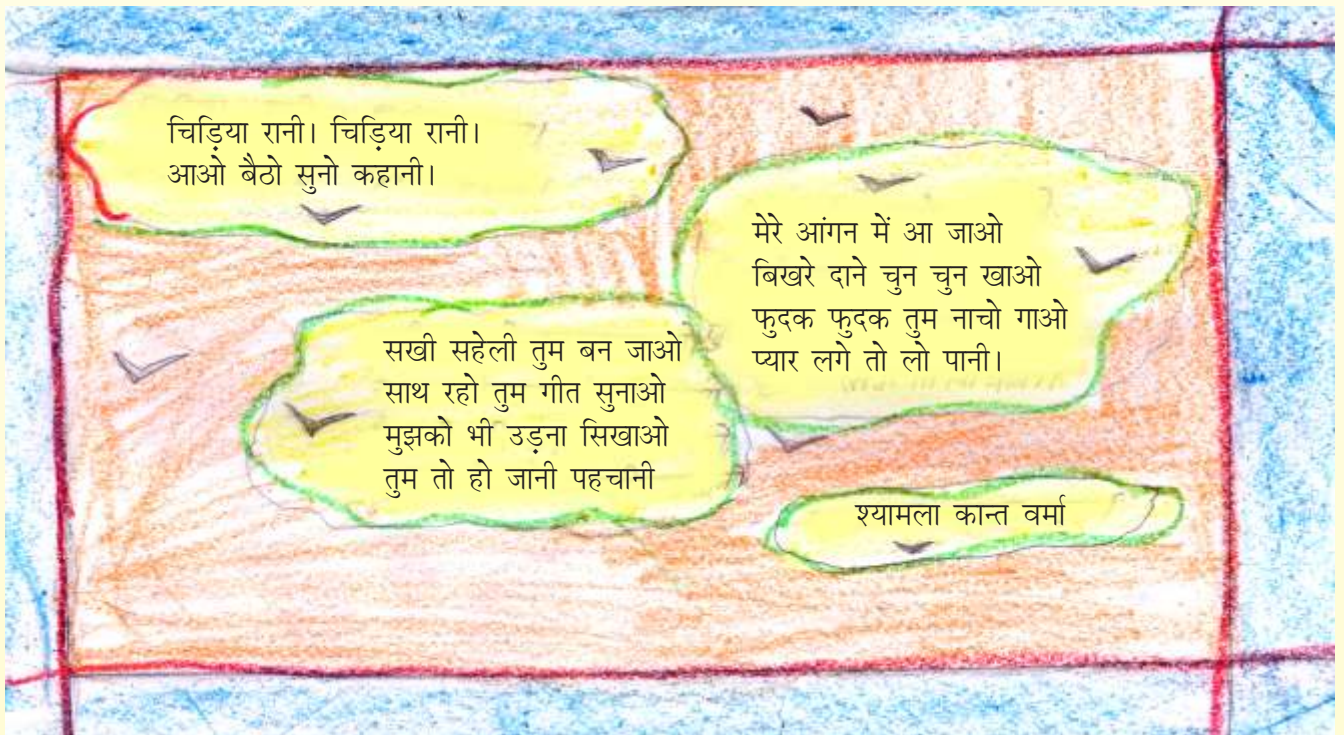 चिड़िया रानी। चिड़िया रानी।
आओ बैठो सुनो कहानी।
मेरे आंगन में आ जाओ
बिखरे दाने चुन चुन खाओ
फुदक फुदक तुम नाचो गाओ
प्यार लगे तो लो पानी।
सखी सहेली तुम बन जाओ
साथ रहो तुम गीत सुनाओ
मुझको भी उड़ना सिखाओ
तुम तो हो जानी पहचानी
श्यामला कान्त वर्मा